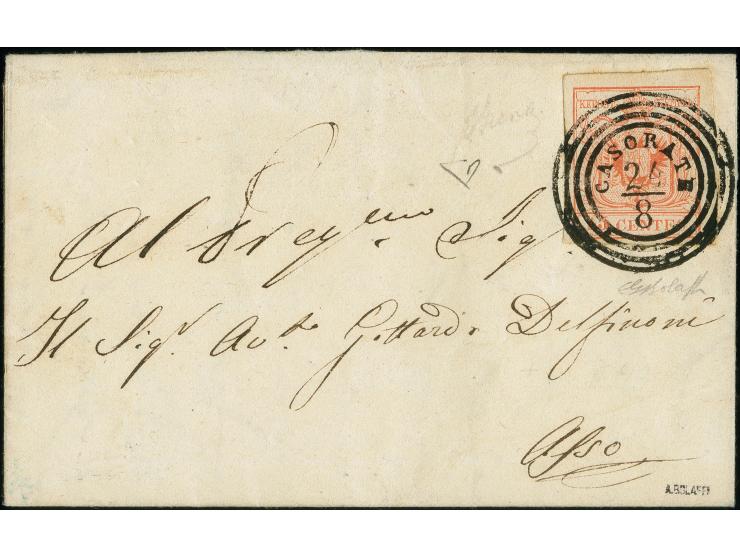 CASORATE
24
8
CENTES
Al Preg.mo Sig.
Il Sig.r Av.to Gottardo Delfinoni
Asso
A.BOLAFFI